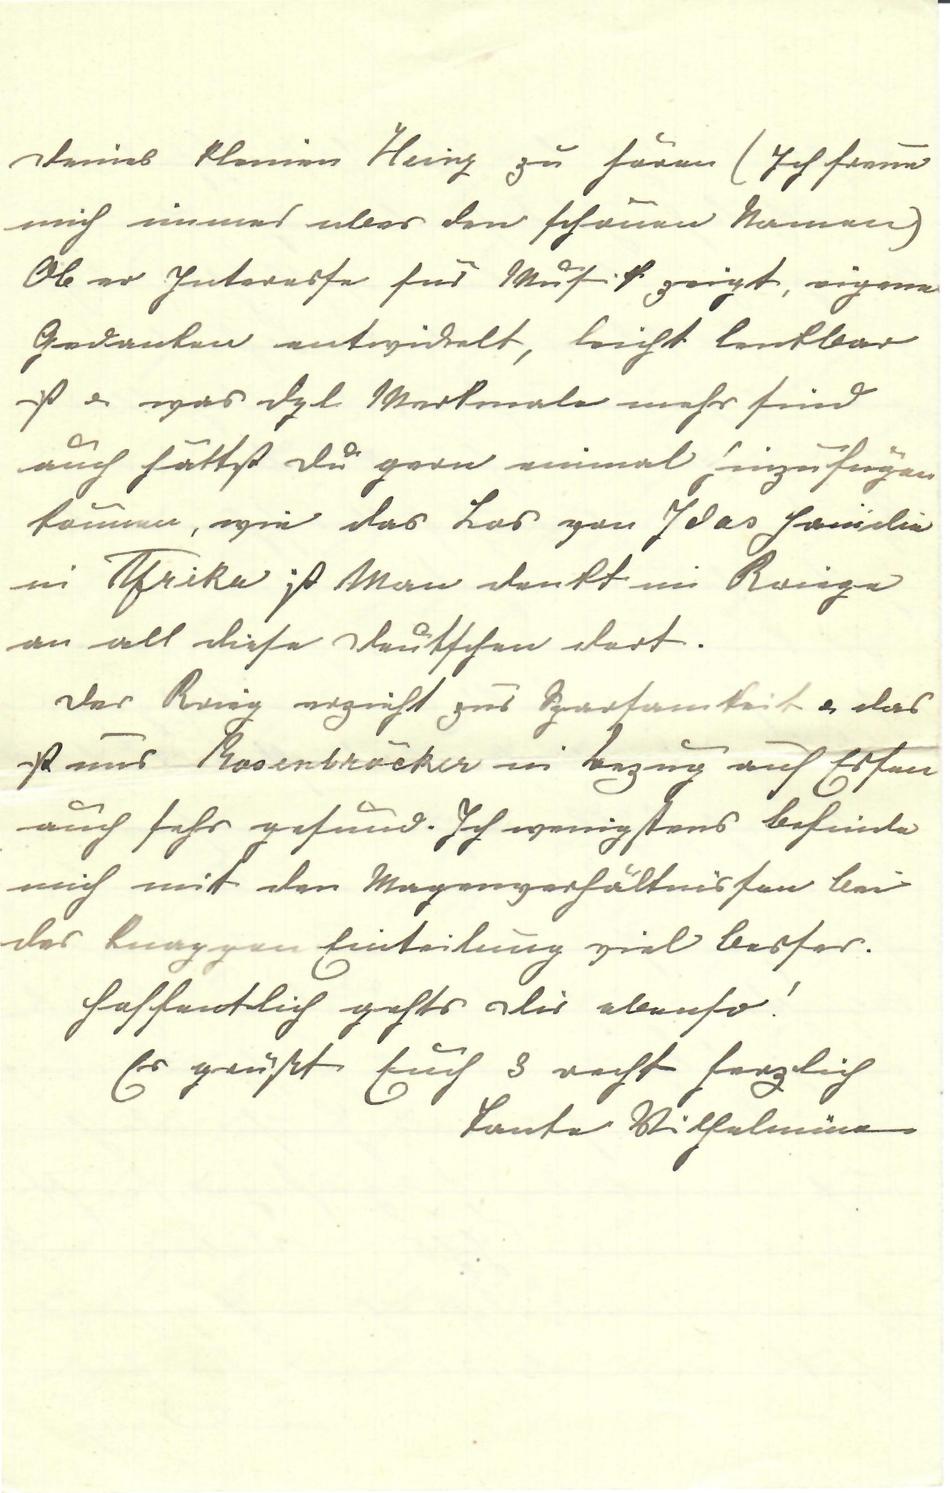 deines kleinen Heinz zu hören (Ich freue
mich immer über den schönen Namen)
Ob er Interesse für Musik zeigt, eigene
Gedanken entwickelt, leicht lenkbar
ist & was dgl. Merkmale mehr sind
auch hättst Du gern einmal hinzufügen
können, wie das Los von Idas Familie
in Afrika ist Man denkt im Kriege
an all diese Deutschen dort.
Der Krieg erzieht zur Sparsamkeit & das
ist uns Rosenbröcker in bezug auf Essen
auch sehr gesund. Ich wenigstens befinde
mich mit den Magenverhältnissen bei
der knappen Einteilung viel besser.
Hoffentlich gehts Dir ebenso!
Es grüßt Euch 3 recht herzlich
Tante Wilhelmine